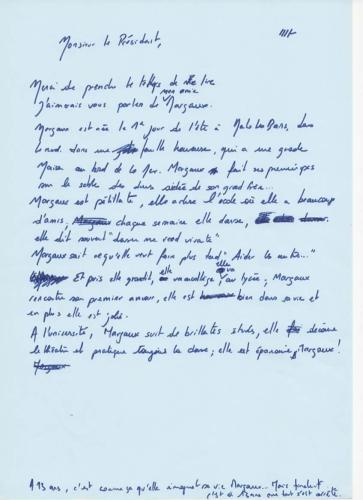 Monsieur le Président,
Merci de prendre le temps de me lire
mon amie
J'aimerais vous parler de Margaux.
Margaux est née le 1er jour de l'été à Malo les Bains, dans
le nord. dans une famille heureuse, qui a une grande
Maison au bord de la Mer. Margaux fait ses premiers pas
sur le sable des dunes aidée de son grand frère...
Margaux est pétillante, elle adore l'école où elle a beaucoup
d'amis. chaque semaine elle danse,
elle dit souvent "danser me rend vivante"
Margaux sait ce qu'elle veut faire plus tard "Aider les autres..."
Et puis elle grandit, elle au collège, elle va au lycée, Margaux
rencontre son premier amour, elle est bien dans sa vie et
en plus elle est jolie.
A l'université, Margaux suit de brillantes études, elle découvre
le théâtre et pratique toujours la danse, elle est épanouie, Margaux!
A 13 ans, c'est comme ça qu'elle imaginait sa vie Margaux... Mais finalement
c'est à 13 ans que tout s'est arrêté.